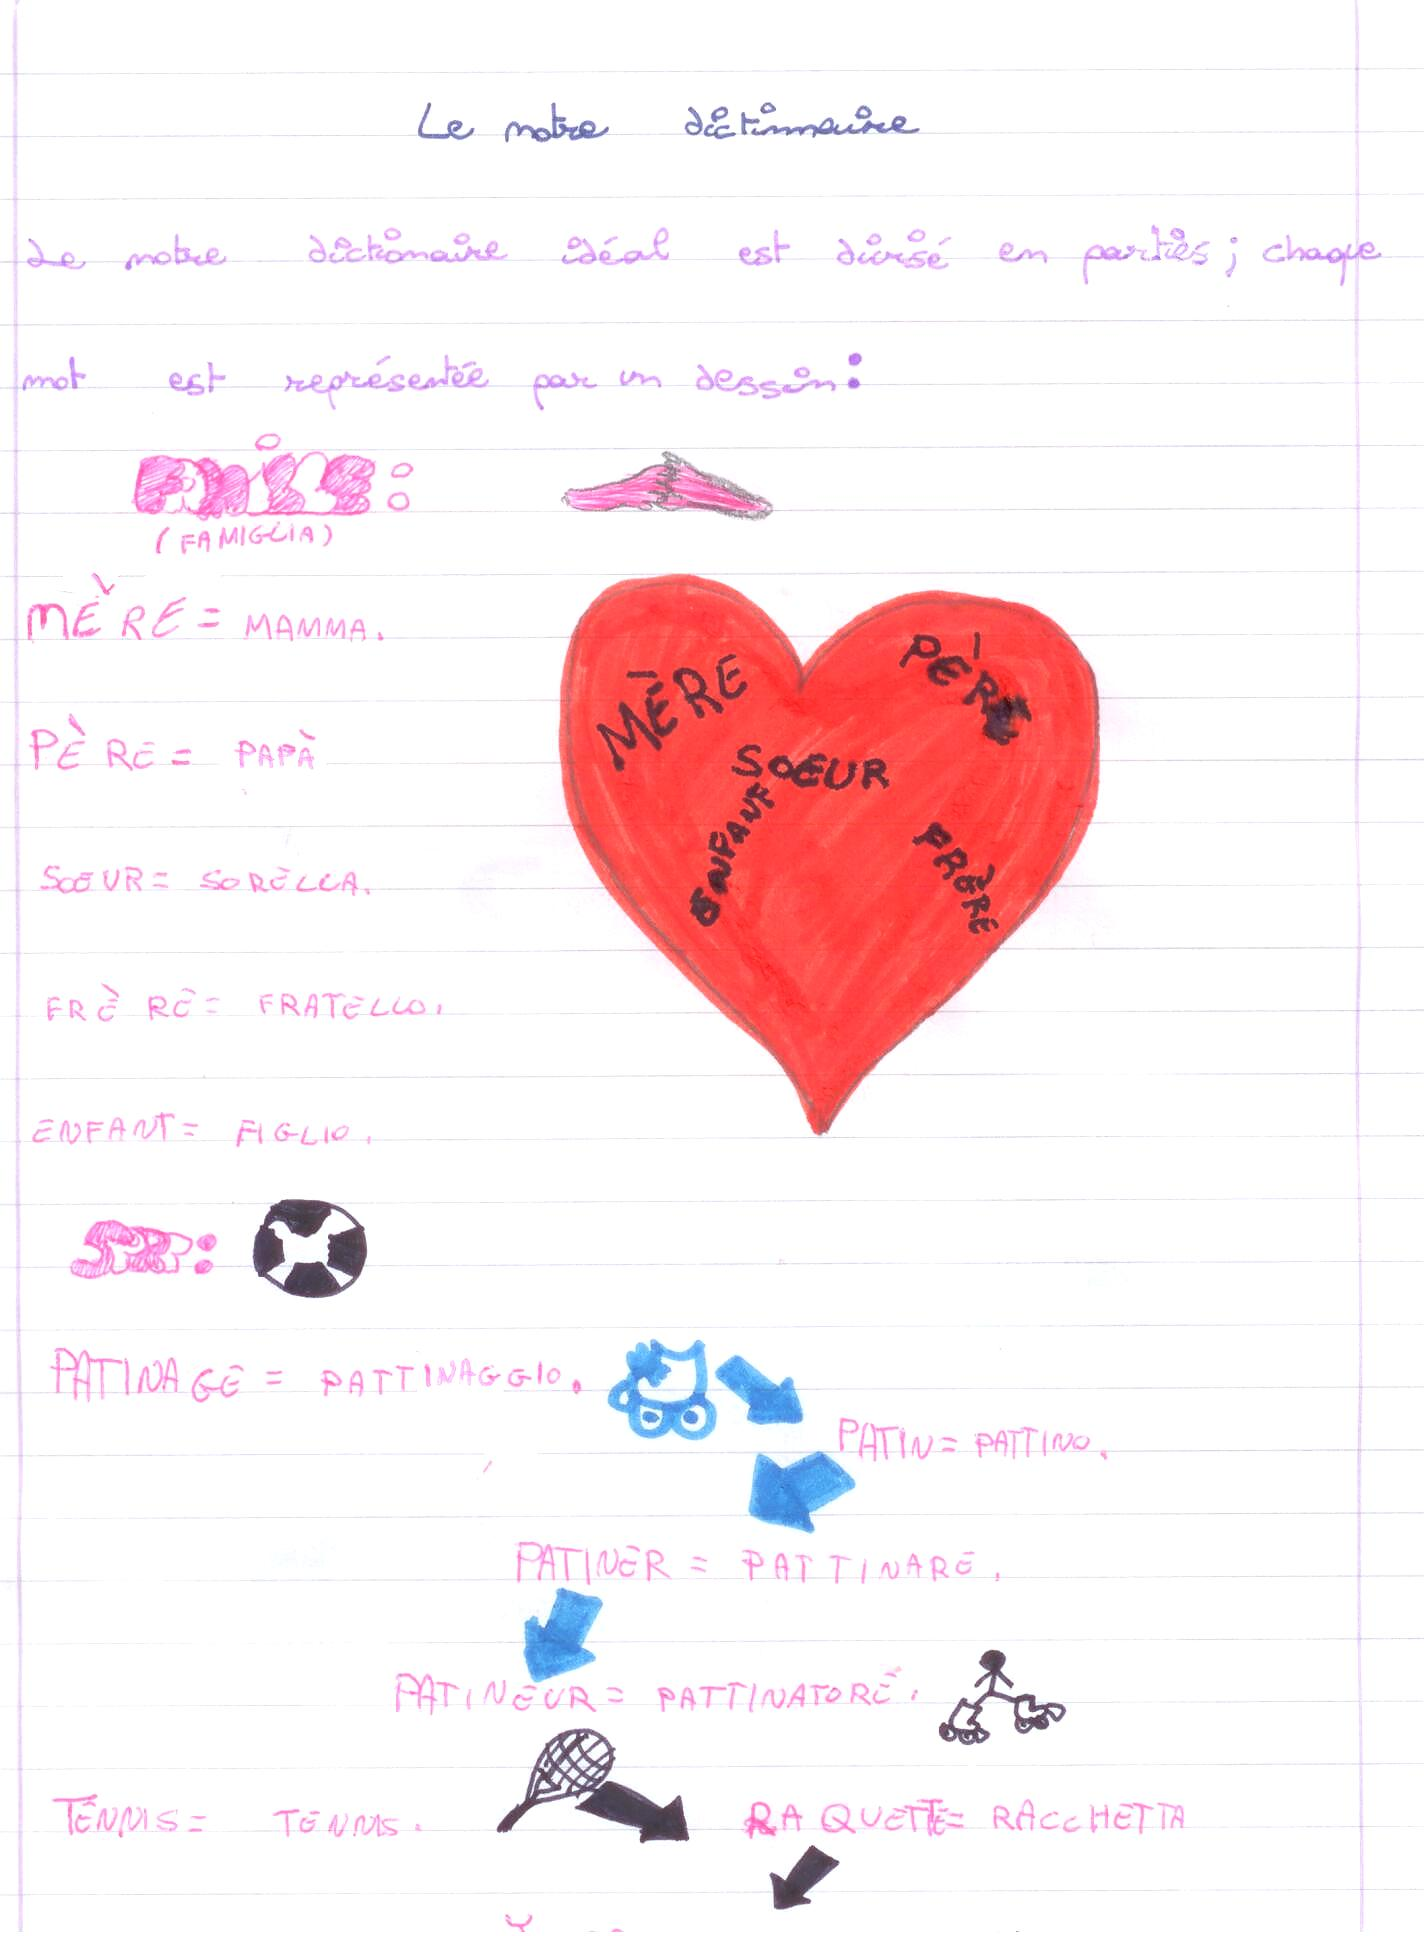 Le notre dictinnaire
Le notre dictionaire idéal est divisé en partiès; chaque
mot est représentée par un dessin:
(FAMIGLIA)
MÈRE = MAMMA.
PÈRE = PAPÀ
SOEUR = SORELLA.
FRÈRE = FRATELLO.
ENFANT = FIGLIO.
MÈRE
PÈRE
SOEUR
ENFANT
FRÈRE
PATINAGE = PATTINAGGIO.
PATIN = PATTINO.
PATINER = PATTINARE.
PATINEUR = PATTINATORE.
TENNIS = TENNIS.
RAQUETTE = RACCHETTA